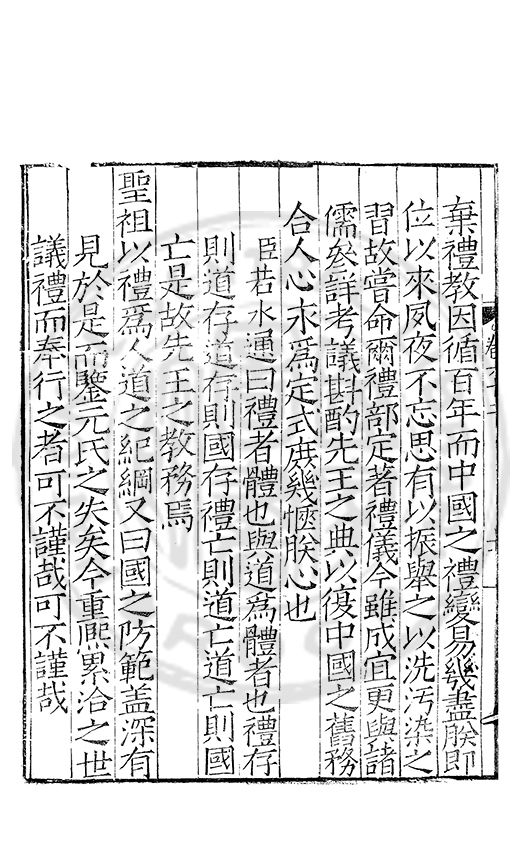 棄禮教因循百年而中國之禮變易幾盡朕即
位以來夙夜不忘思有以振舉之以洗汚染之
習故嘗命爾禮部定著禮儀今雖成宜更與諸
儒參詳考議斟酌先王之典以復中國之舊務
合人心永爲定式庶幾愜朕心也
臣若水通曰禮者體也與道爲體者也禮存
則道存道存則國存禮亡則道亡道亡則國
亡是故先王之教務焉
聖祖以禮爲人道之紀綱又曰國之防範盖深有
見於是而鑒元氏之失矣今重熈累洽之世
議禮而奉行之者可不謹哉可不謹哉